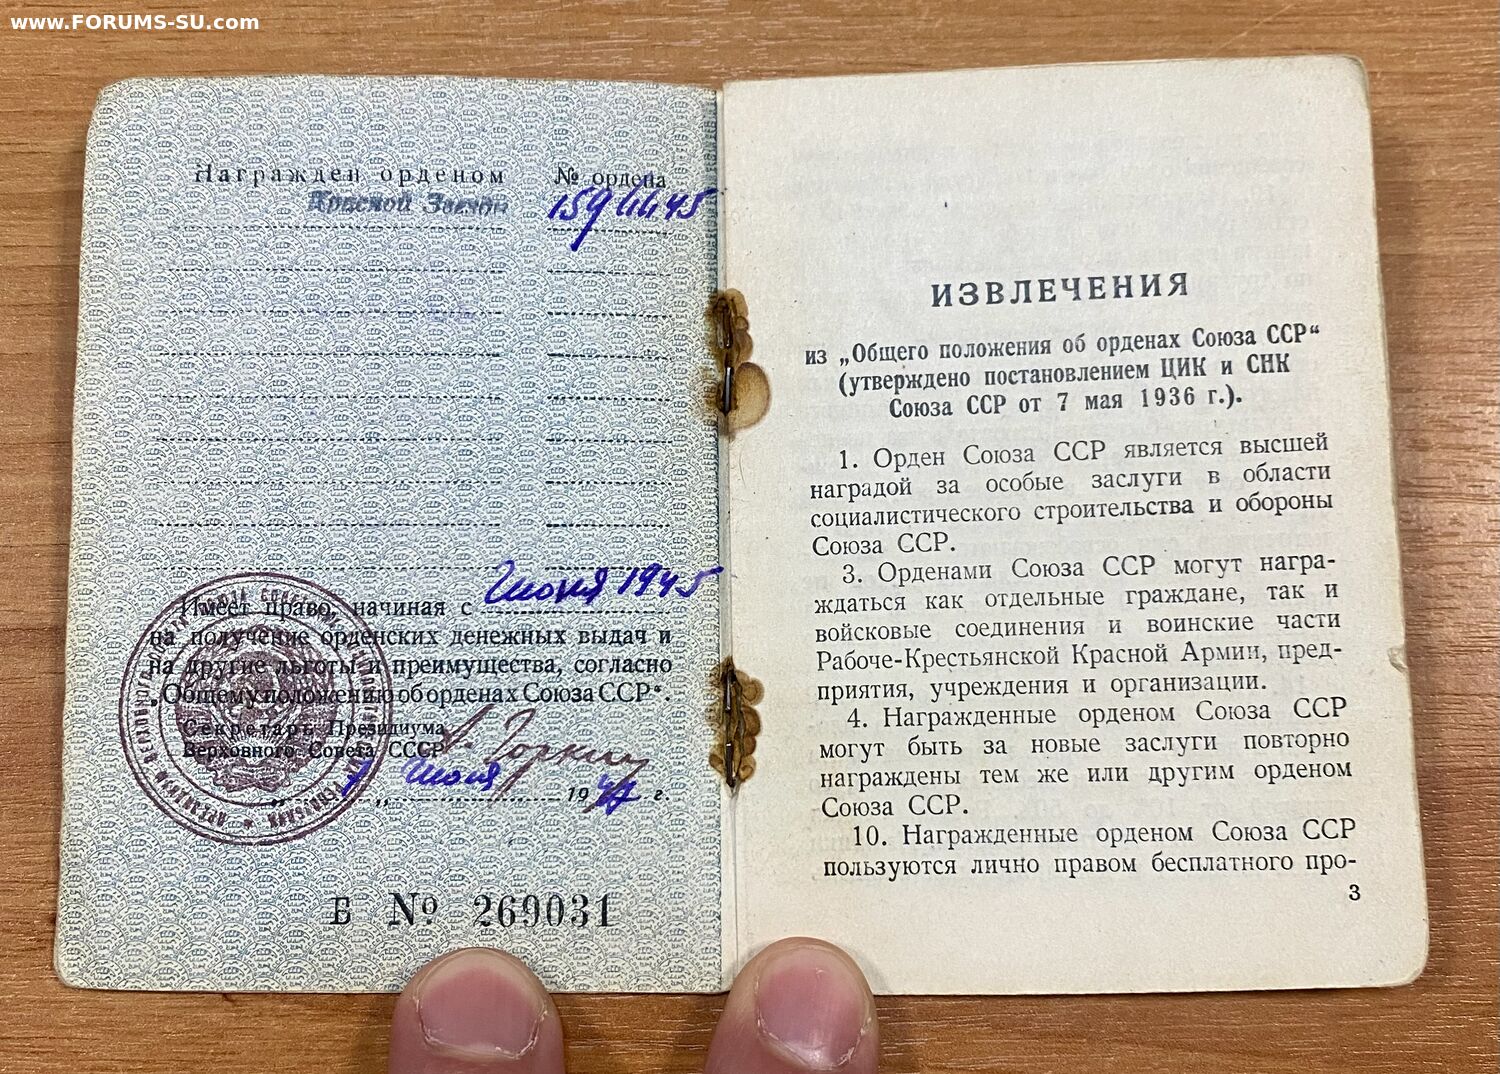 www.FORUMS-SU.com
Награжден орденом № ордена
Красной Звезды 1594445
Июня 1945
Имеет право, начиная с
на получение орденских денежных выдач и
на другие льготы и преимущества, согласно
„Общему положению об орденах Союза ССР“.
Секретарь Президиума
Верховного Совета СССР А. Горкин
7 „ Июня 1947 г.
Б № 269031
ИЗВЛЕЧЕНИЯ
из „Общего положения об орденах Союза ССР“
(утверждено постановлением ЦИК и СНК
Союза ССР от 7 мая 1936 г.).
1. Орден Союза ССР является высшей
наградой за особые заслуги в области
социалистического строительства и обороны
Союза ССР.
3. Орденами Союза ССР могут награ-
ждаться как отдельные граждане, так и
войсковые соединения и воинские части
Рабоче-Крестьянской Красной Армии, пред-
приятия, учреждения и организации.
4. Награжденные орденом Союза ССР
могут быть за новые заслуги повторно
награждены тем же или другим орденом
Союза ССР.
10. Награжденные орденом Союза ССР
пользуются лично правом бесплатного про-
3